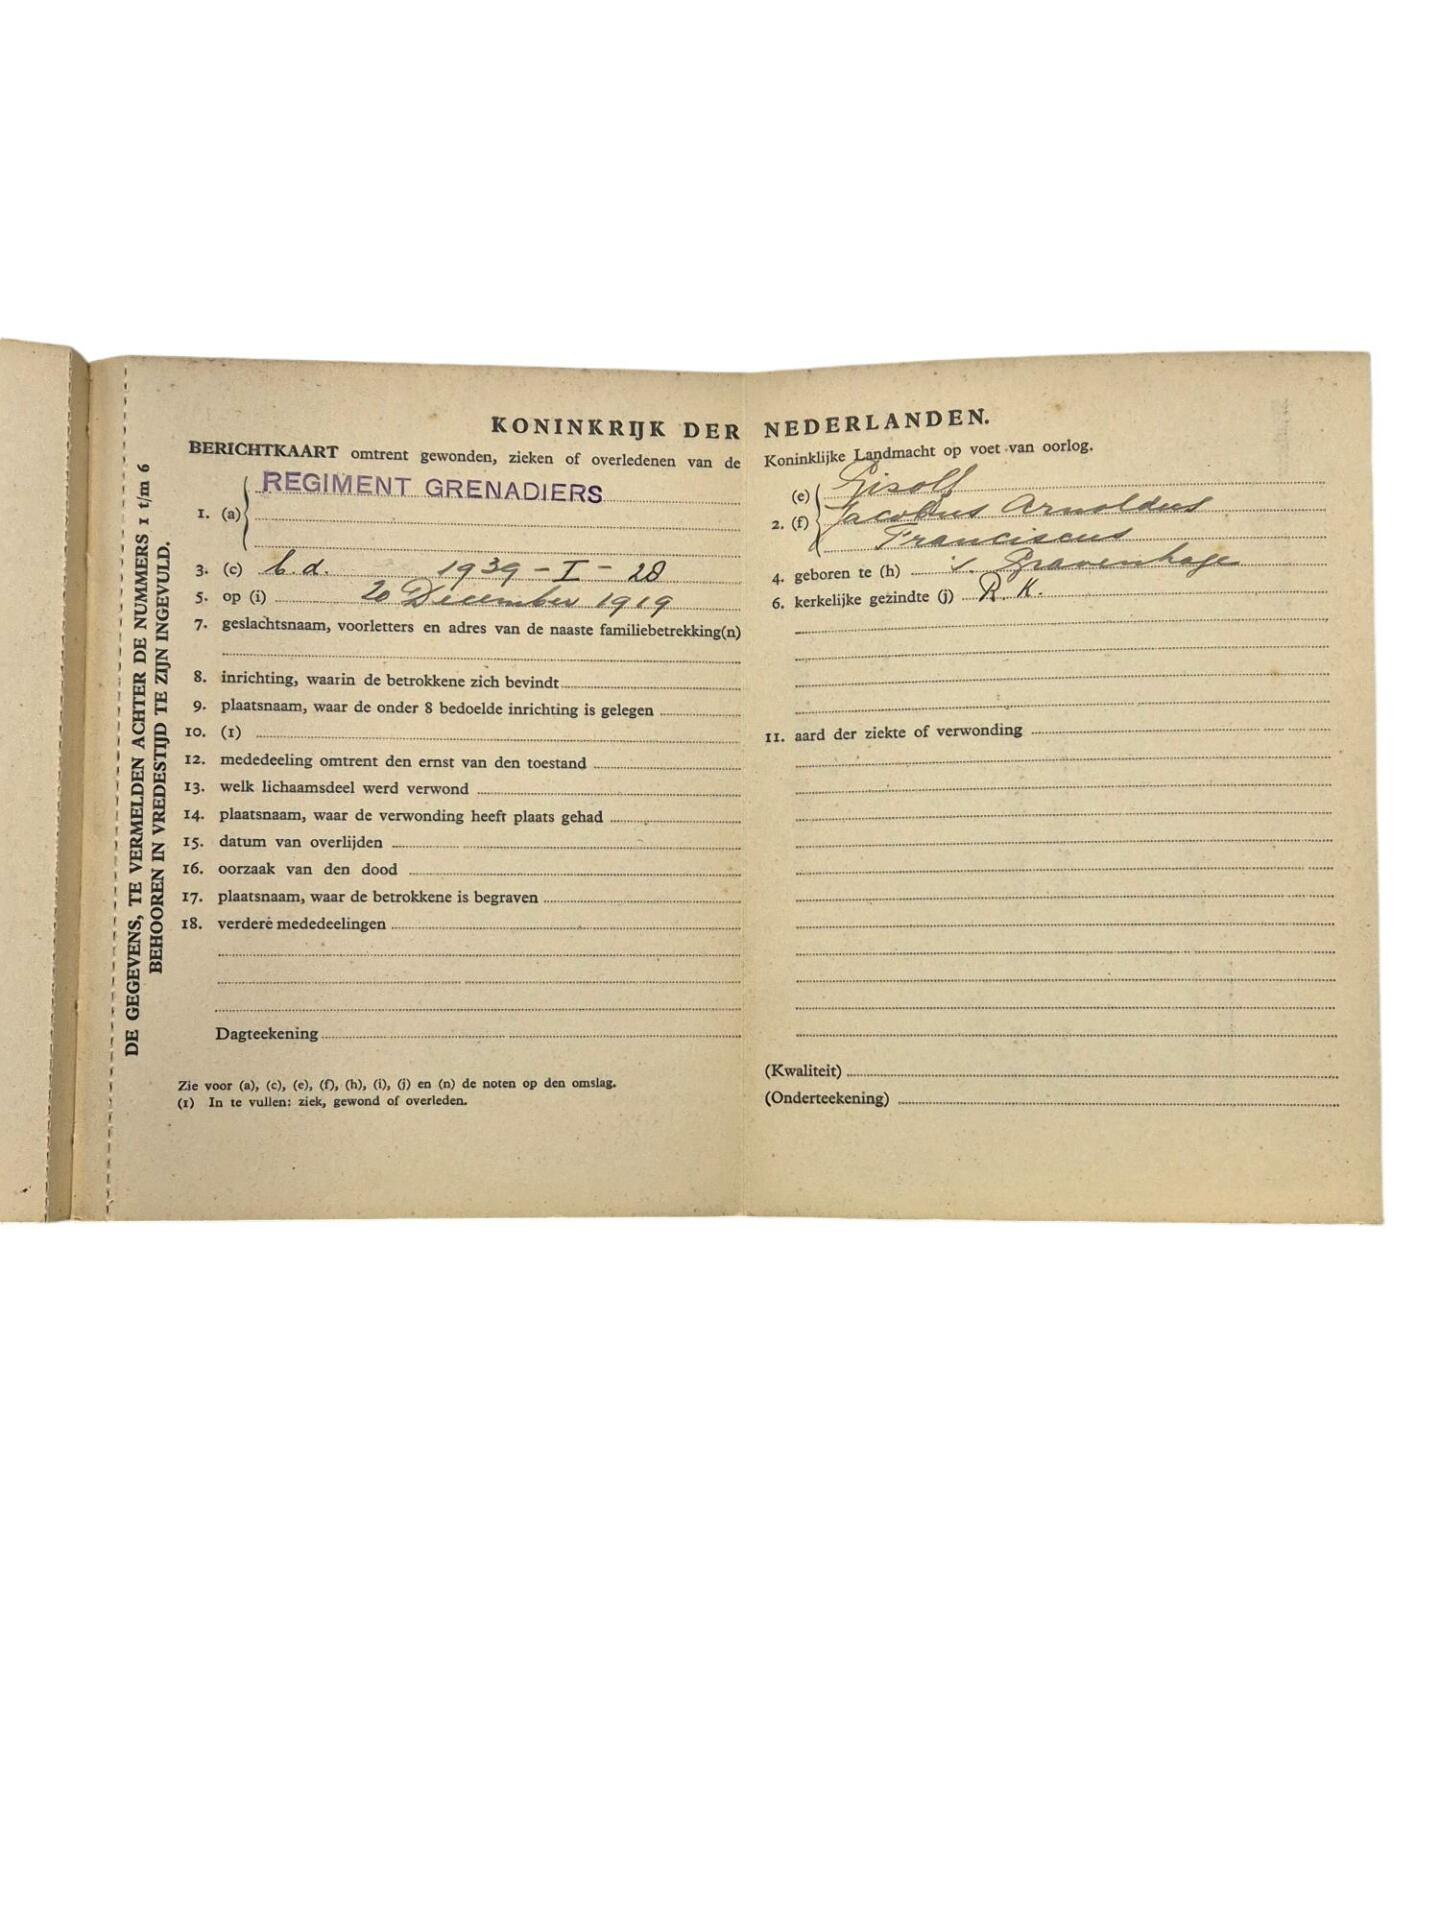 KONINKRIJK DER NEDERLANDEN.
BERICHTKAART omtrent gewonden, zieken of overledenen van de Koninklijke Landmacht op voet van oorlog.
REGIMENT GRENADIERS
1. (a)
3. (c) b.d. 1939 - I - 28
5. op (i) 20 December 1919
7. geslachtsnaam, voorletters en adres van de naaste familiebetrekking(n)
8. inrichting, waarin de betrokkene zich bevindt
9. plaatsnaam, waar de onder 8 bedoelde inrichting is gelegen
10. (1)
12. mededeeling omtrent den ernst van den toestand
13. welk lichaamsdeel werd verwond
14. plaatsnaam, waar de verwonding heeft plaats gehad
15. datum van overlijden
16. oorzaak van den dood
17. plaatsnaam, waar de betrokkene is begraven
18. verdere mededeelingen
Dagteekening
Zie voor (a), (c), (e), (f), (h), (i), (j) en (n) de noten op den omslag.
(1) In te vullen: ziek, gewond of overleden.
(e) Gisolf
2. (f) Jacobus Arnoldus
Franciscus
4. geboren te (h) 's Gravenhage
6. kerkelijke gezindte (j) R.K.
11. aard der ziekte of verwonding
(Kwaliteit)
(Onderteekening)
DE GEGEVENS, TE VERMELDEN ACHTER DE NUMMERS 1 t/m 6
BEHOOREN IN VREDESTIJD TE ZIJN INGEVULD.